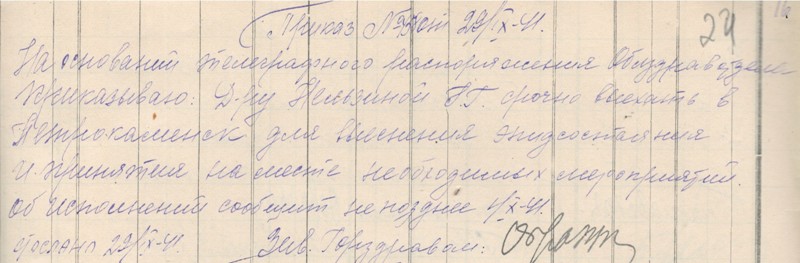 Приказ № от 29/IX-41.
24
На основании телеграфного распоряжения Облздравотдела
Приказываю: Д-ру Нельзиной Н.Г. срочно выехать в
Петрокаменск для выеснения эпидсостаяния
и принятия на месте необходимых мероприятий.
об исполнений сообщить непозднее 4/X-41.
29/IX-41. Зав. Горздравом: